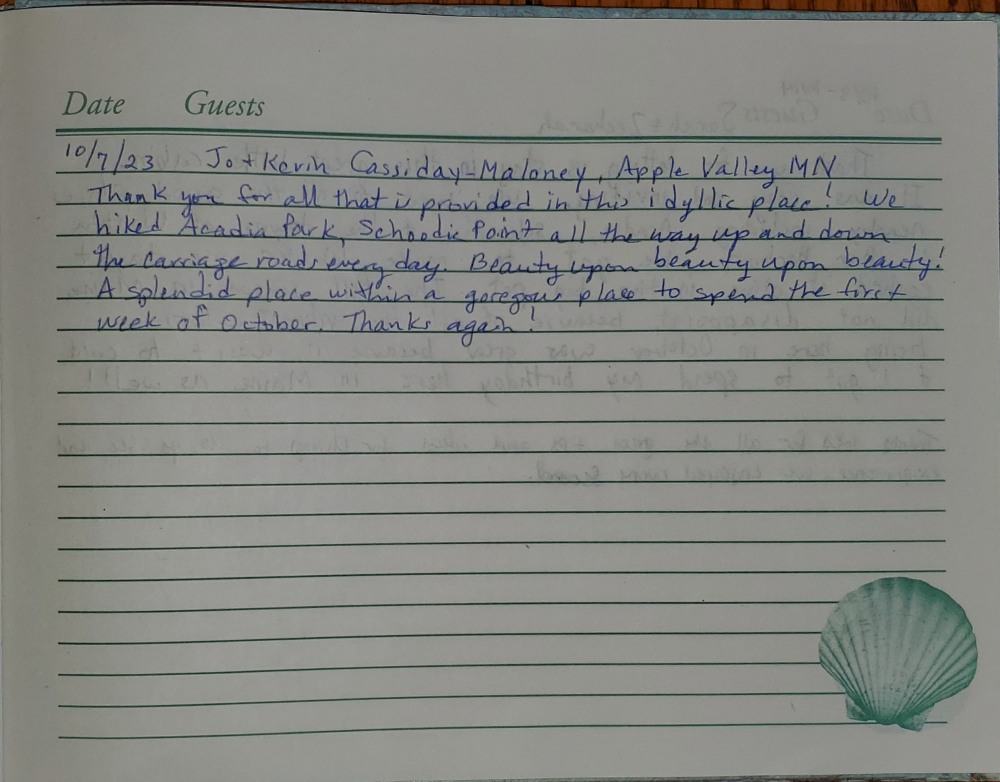 Date Guests
10/7/23 Jo + Kevin Cassiday-Maloney, Apple Valley MN
Thank you for all that is provided in this idyllic place! We
hiked Acadia Park, Schoodic Point all the way up and down
the carriage roads every day. Beauty upon beauty upon beauty!
A splendid place within a goregous place to spend the first
week of October. Thanks again!